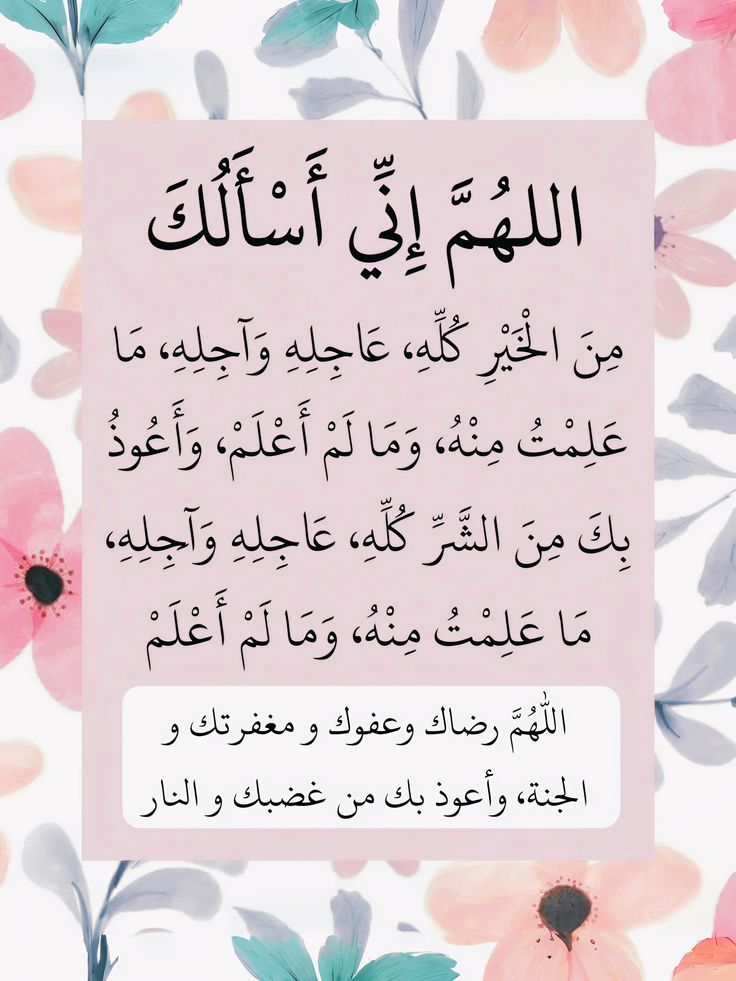 اللهُمَّ إِنِّي أَسْأَلُكَ
مِنَ الْخَيْرِ كُلِّهِ، عَاجِلِهِ وَآجِلِهِ، مَا
عَلِمْتُ مِنْهُ، وَمَا لَمْ أَعْلَمْ، وَأَعُوذُ
بِكَ مِنَ الشَّرِّ كُلِّهِ، عَاجِلِهِ وَآجِلِهِ،
مَا عَلِمْتُ مِنْهُ، وَمَا لَمْ أَعْلَمْ
اللّٰهُمَّ رضاك وعفوك و مغفرتك و
الجنة، وأعوذ بك من غضبك و النار